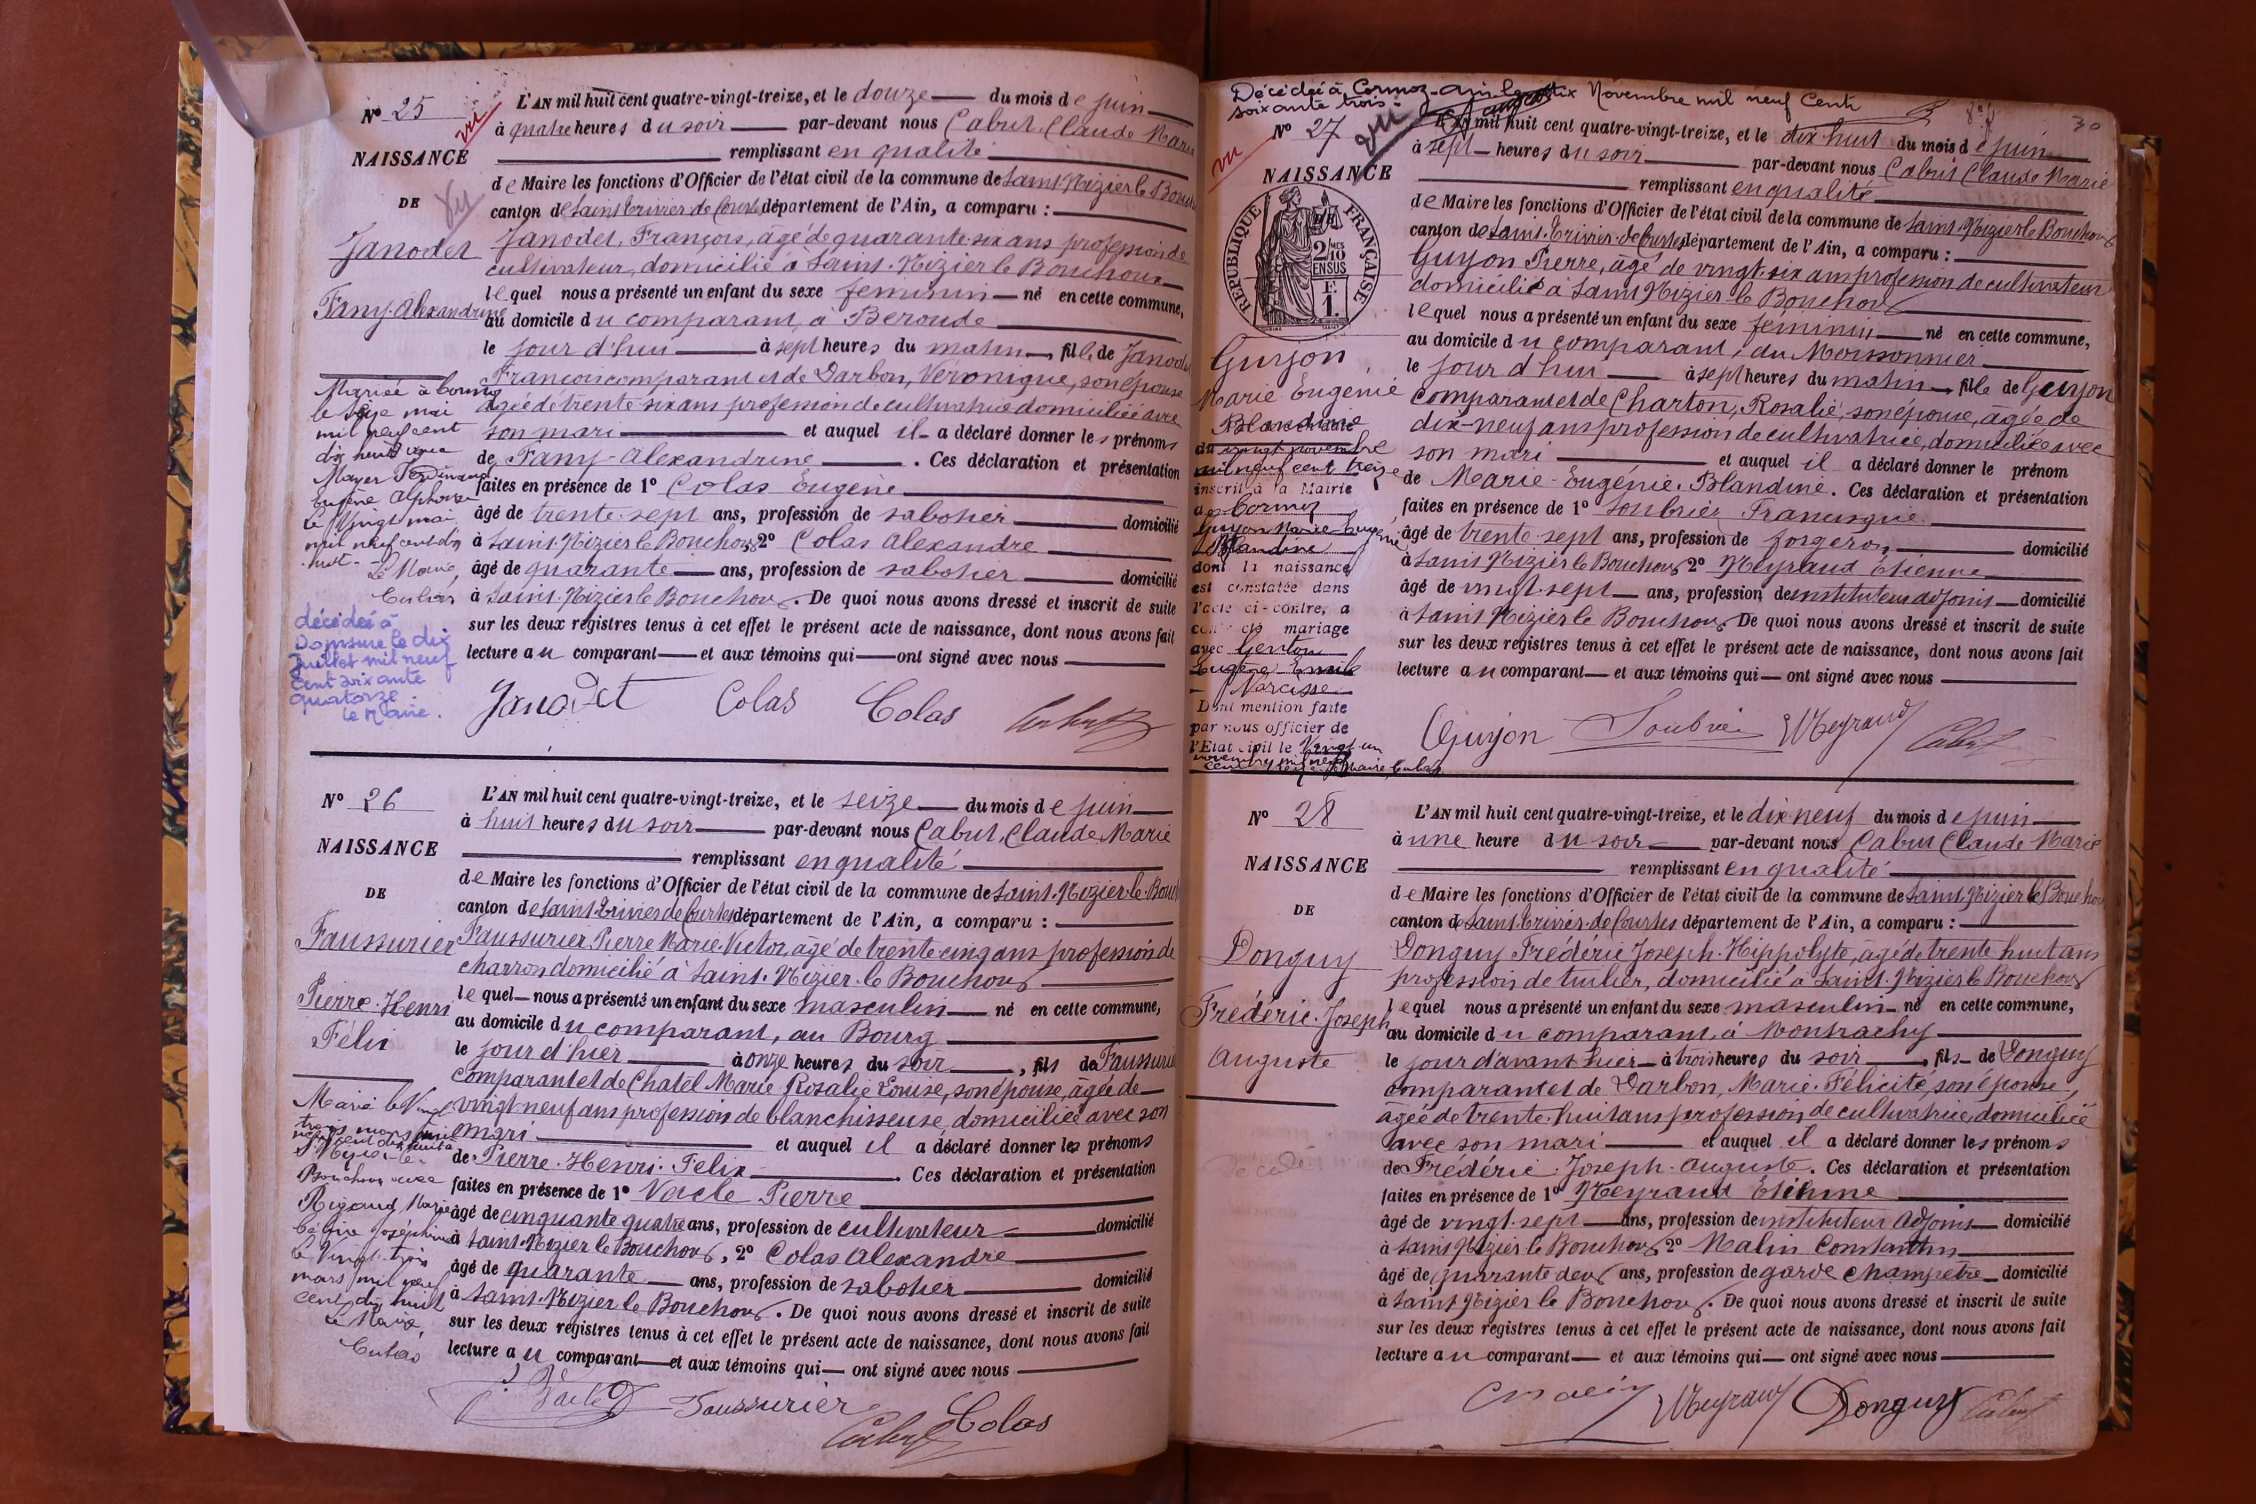 Nº 25
vu
NAISSANCE
DE
Janodet
Fany-Alexandrine
Mariée à
le seize mai
mil neuf cent
dix huit avec
Mayer Ferdinand
Eugène Alphonse
le vingt mai
mil neuf cent dix
huit.
Le Maire,
décédée à
Domsure le dix
Juillet mil neuf
cent soixante
quatorze.
Le Maire.
L'AN mil huit cent quatre-vingt-treize, et le douze du mois de juin
à quatre heures du soir par-devant nous Cabut, Claude Marie
remplissant en qualité
de Maire les fonctions d'Officier de l'état civil de la commune de Saint-Nizier le Bouch
canton de Saint-Trivier-de-Courtes département de l'Ain, a comparu :
Janodet, François, âgé de quarante-six ans profession de
cultivateur, domicilié à Saint-Nizier le Bouchoux
lequel nous a présenté un enfant du sexe feminin né en cette commune,
au domicile du comparant, à Beroude
le jour d'hui à sept heures du matin, fille de Janodet
François comparant et de Darbon, Véronique, son épouse
âgée de trente-six ans profession de cultivatrice domiciliée avec
son mari et auquel il a déclaré donner les prénoms
de Fany-Alexandrine. Ces déclaration et présentation
faites en présence de 1º Colas Eugène
âgé de trente-sept ans, profession de sabotier domicilié
à Saint-Nizier le Bouchoux 2º Colas Alexandre
âgé de quarante ans, profession de sabotier domicilié
à Saint-Nizier le Bouchoux. De quoi nous avons dressé et inscrit de suite
sur les deux registres tenus à cet effet le présent acte de naissance, dont nous avons fait
lecture au comparant et aux témoins qui ont signé avec nous
Janodet Colas Colas Cabut
Nº 26
NAISSANCE
DE
Faussurier
Pierre-Henri
Félix
Marié le vingt
trois mars mil
neuf cent dix huit à
St Nizier-le-
Bouchoux avec
Rigaud Marie
Joséphine
le vingt-trois
mars mil neuf
cent dix huit
Le Maire,
L'AN mil huit cent quatre-vingt-treize, et le seize du mois de juin
à huit heures du soir par-devant nous Cabut, Claude Marie
remplissant en qualité
de Maire les fonctions d'Officier de l'état civil de la commune de Saint-Nizier-le-Bouch
canton de Saint-Trivier de Courtes département de l'Ain, a comparu :
Faussurier Pierre Marie Victor, âgé de trente-cinq ans profession de
charron domicilié à Saint-Nizier-le Bouchoux
lequel nous a présenté un enfant du sexe masculin né en cette commune,
au domicile du comparant, au Bourg
le jour d'hier à onze heures du soir, fils de Faussurier
comparant et de Chatel Marie Rosalie Louise, son épouse, âgée de
vingt neuf ans profession de blanchisseuse, domiciliée avec son
mari et auquel il a déclaré donner les prénoms
de Pierre-Henri-Félix. Ces déclaration et présentation
faites en présence de 1º Vacle Pierre
âgé de cinquante quatre ans, profession de cultivateur domicilié
à Saint-Nizier le Bouchoux, 2º Colas Alexandre
âgé de quarante ans, profession de sabotier domicilié
à Saint-Nizier le Bouchoux. De quoi nous avons dressé et inscrit de suite
sur les deux registres tenus à cet effet le présent acte de naissance, dont nous avons fait
lecture au comparant et aux témoins qui ont signé avec nous
Vacle Faussurier Cabut Colas
30
Décédée à Cormoz-Ain le dix Novembre mil neuf Cent
soixante trois.
Nº 27
vu
NAISSANCE
DE
RÉPUBLIQUE FRANÇAISE
2 MES 10 EN SUS
F. 1.
Guyon
Marie Eugénie
Blandine
du vingt novembre
mil neuf cent treize
inscrit à la Mairie
de Cormoz
Guyon Marie Eugénie
Blandine
dont la naissance
est constatée dans
l'acte ci-contre, a
contracté mariage
avec Genton
Eugène Emile
Narcisse
Dont mention faite
par nous officier de
l'Etat civil le vingt-un
novembre mil neuf
cent treize Le Maire,
L'AN mil huit cent quatre-vingt-treize, et le dix huit du mois de juin
à sept heures du soir par-devant nous Cabut Claude Marie
remplissant en qualité
de Maire les fonctions d'Officier de l'état civil de la commune de Saint-Nizier le Bouchoux
canton de Saint-Trivier-de-Courtes département de l'Ain, a comparu :
Guyon Pierre, âgé de vingt-six ans profession de cultivateur
domicilié à Saint Nizier-le Bouchoux
lequel nous a présenté un enfant du sexe féminin né en cette commune,
au domicile du comparant, du Moissonnier
le jour d'hui à sept heures du matin, fille de Guyon
comparant et de Charton, Rosalie, son épouse, âgée de
dix-neuf ans profession de cultivatrice, domiciliée avec
son mari et auquel il a déclaré donner le prénom
de Marie-Eugénie-Blandine. Ces déclaration et présentation
faites en présence de 1º Soubrier Francisque
âgé de trente-sept ans, profession de forgeron domicilié
à Saint Nizier le Bouchoux 2º Meyraud Etienne
âgé de vingt-sept ans, profession de instituteur adjoint domicilié
à Saint Nizier le Bouchoux De quoi nous avons dressé et inscrit de suite
sur les deux registres tenus à cet effet le présent acte de naissance, dont nous avons fait
lecture au comparant et aux témoins qui ont signé avec nous
Guyon Soubrier Meyraud Cabut
Nº 28
NAISSANCE
DE
Donguy
Frédéric-Joseph
Auguste
Décédé
L'AN mil huit cent quatre-vingt-treize, et le dix-neuf du mois de juin
à une heure du soir par-devant nous Cabut Claude Marie
remplissant en qualité
de Maire les fonctions d'Officier de l'état civil de la commune de Saint-Nizier le Bouchoux
canton de Saint-Trivier-de-Courtes département de l'Ain, a comparu :
Donguy Frédéric Joseph-Hippolyte, âgé de trente huit ans
profession de tuilier, domicilié à Saint-Nizier le Bouchoux
lequel nous a présenté un enfant du sexe masculin né en cette commune,
au domicile du comparant, à Montrachy
le jour d'avant-hier à trois heures du soir, fils de Donguy
comparant et de Darbon, Marie-Félicité, son épouse,
âgée de trente-huit ans profession de cultivatrice, domiciliée
avec son mari et auquel il a déclaré donner les prénoms
de Frédéric-Joseph-Auguste. Ces déclaration et présentation
faites en présence de 1º Meyraud Etienne
âgé de vingt-sept ans, profession de instituteur adjoint domicilié
à Saint Nizier le Bouchoux 2º Malin Constantin
âgé de quarante deux ans, profession de garde champêtre domicilié
à Saint Nizier le Bouchoux. De quoi nous avons dressé et inscrit de suite
sur les deux registres tenus à cet effet le présent acte de naissance, dont nous avons fait
lecture au comparant et aux témoins qui ont signé avec nous
Malin Meyraud Donguy Cabut